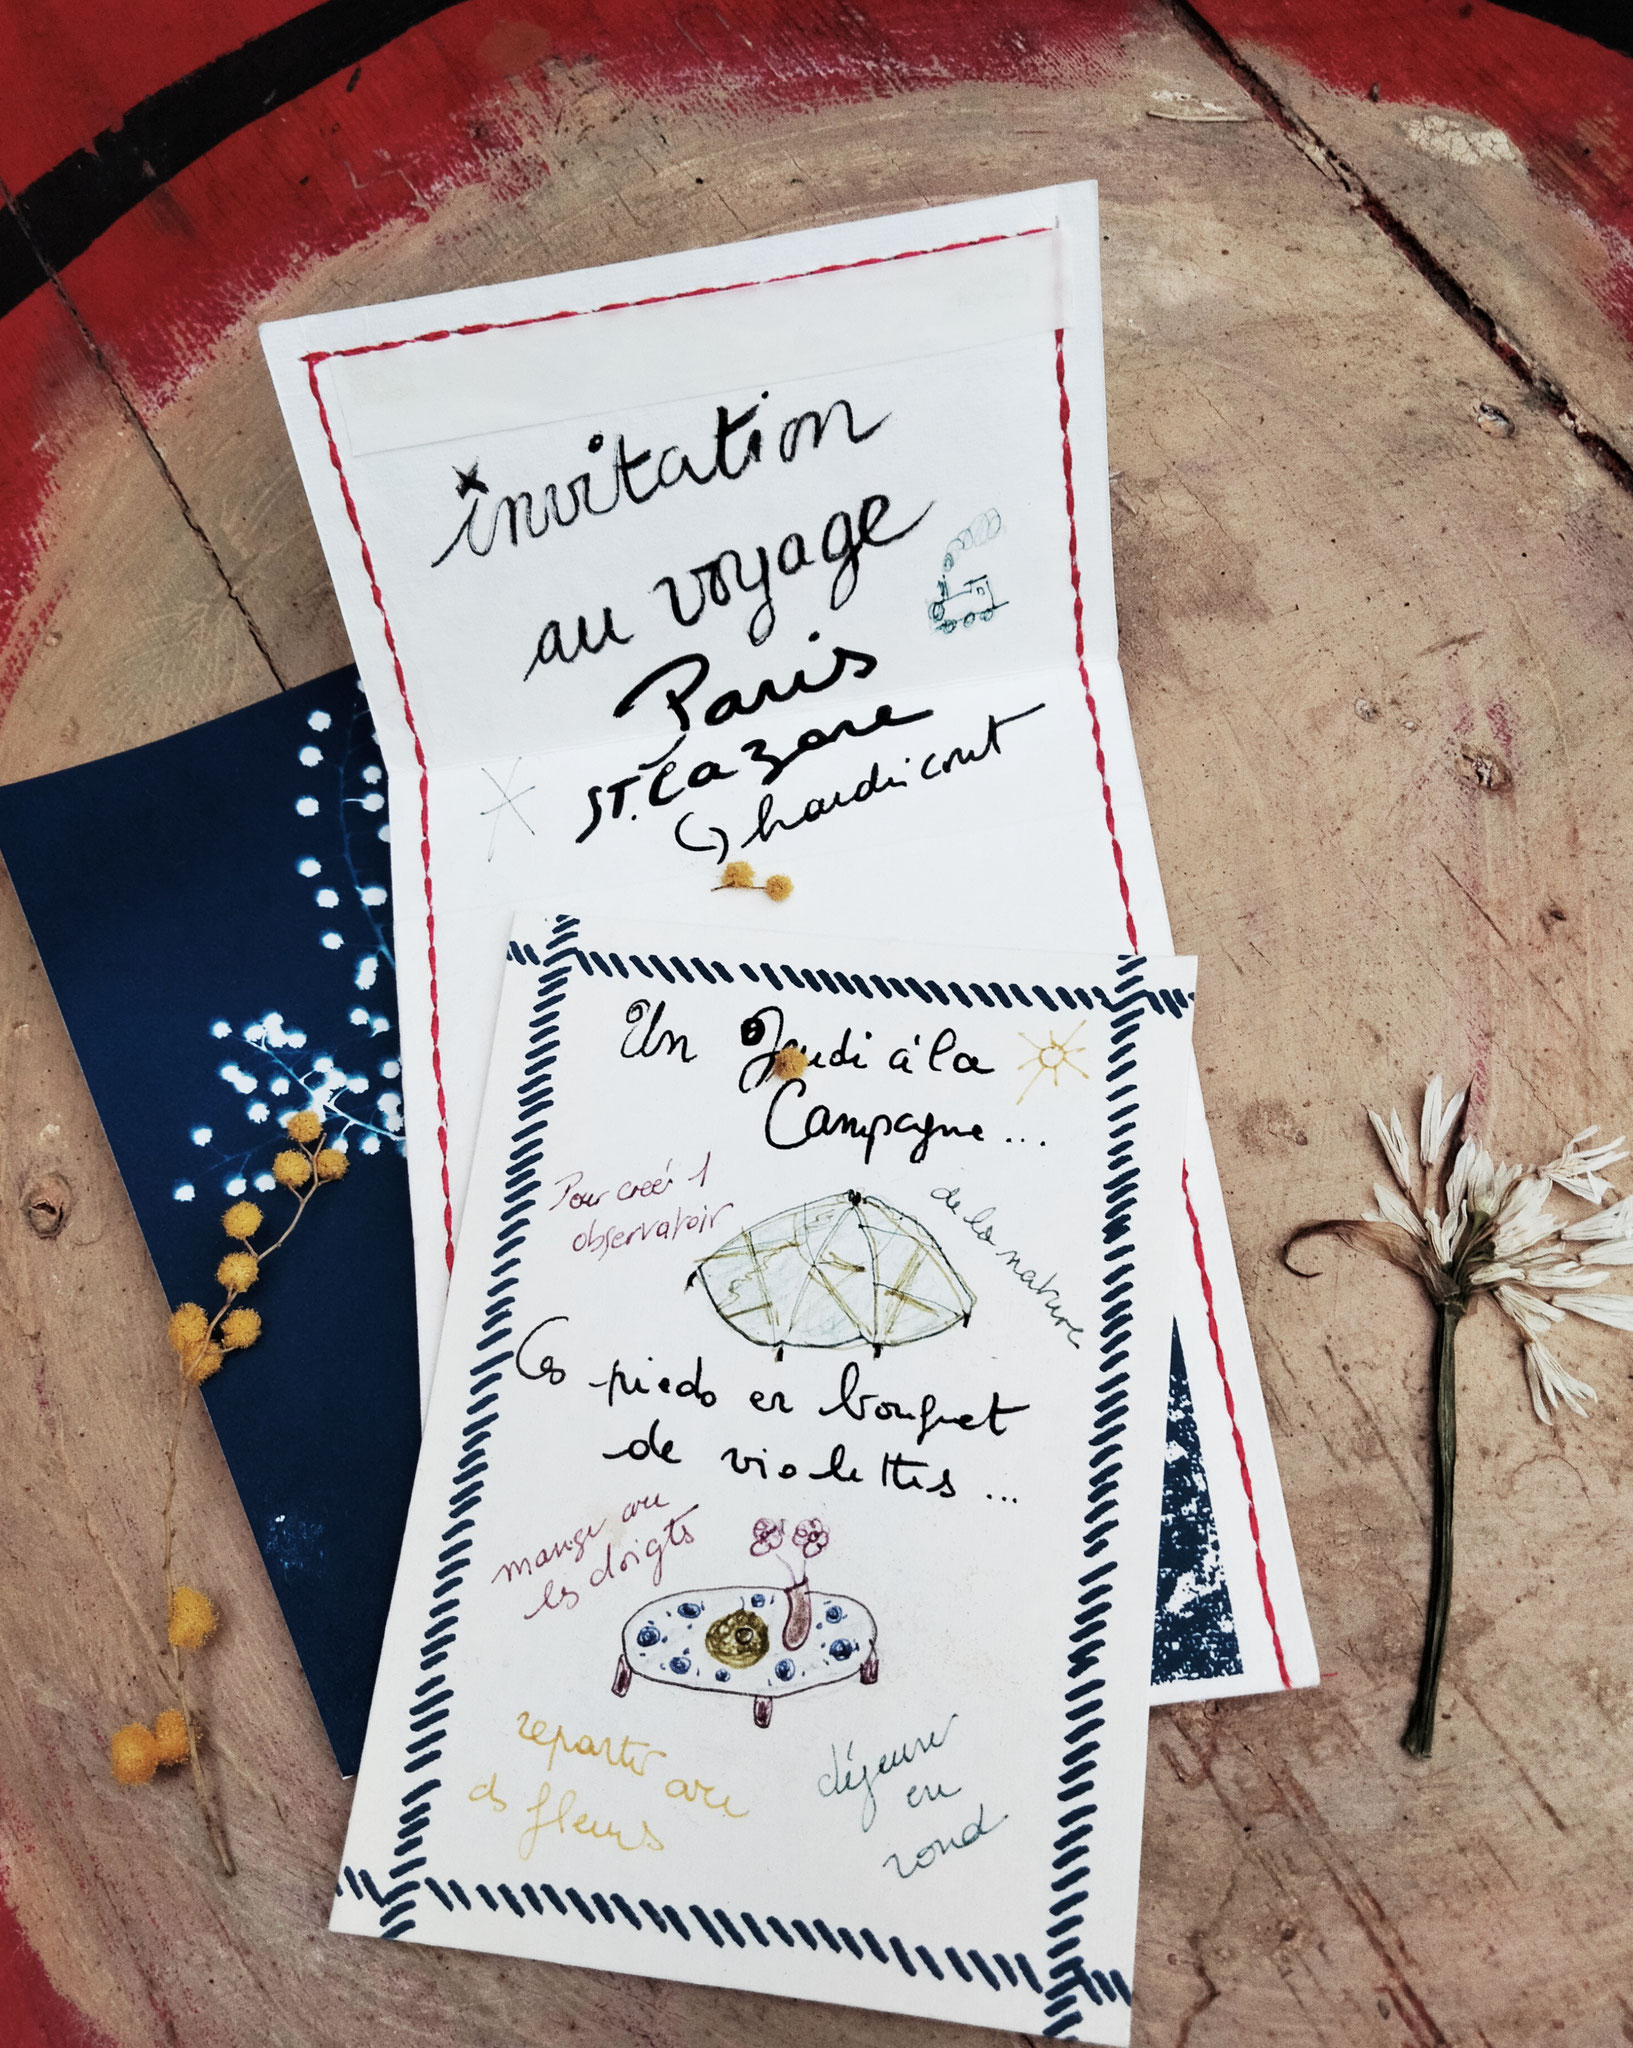 invitation
au voyage
Paris
St. Lazare
hardricourt
Un Jeudi à la
Campagne...
Pour créer 1
observatoir
de la nature
Ces pieds en bouquet
de violettes...
manger avec
les doigts
repartir avec
des fleurs
déjeuner
en
rond